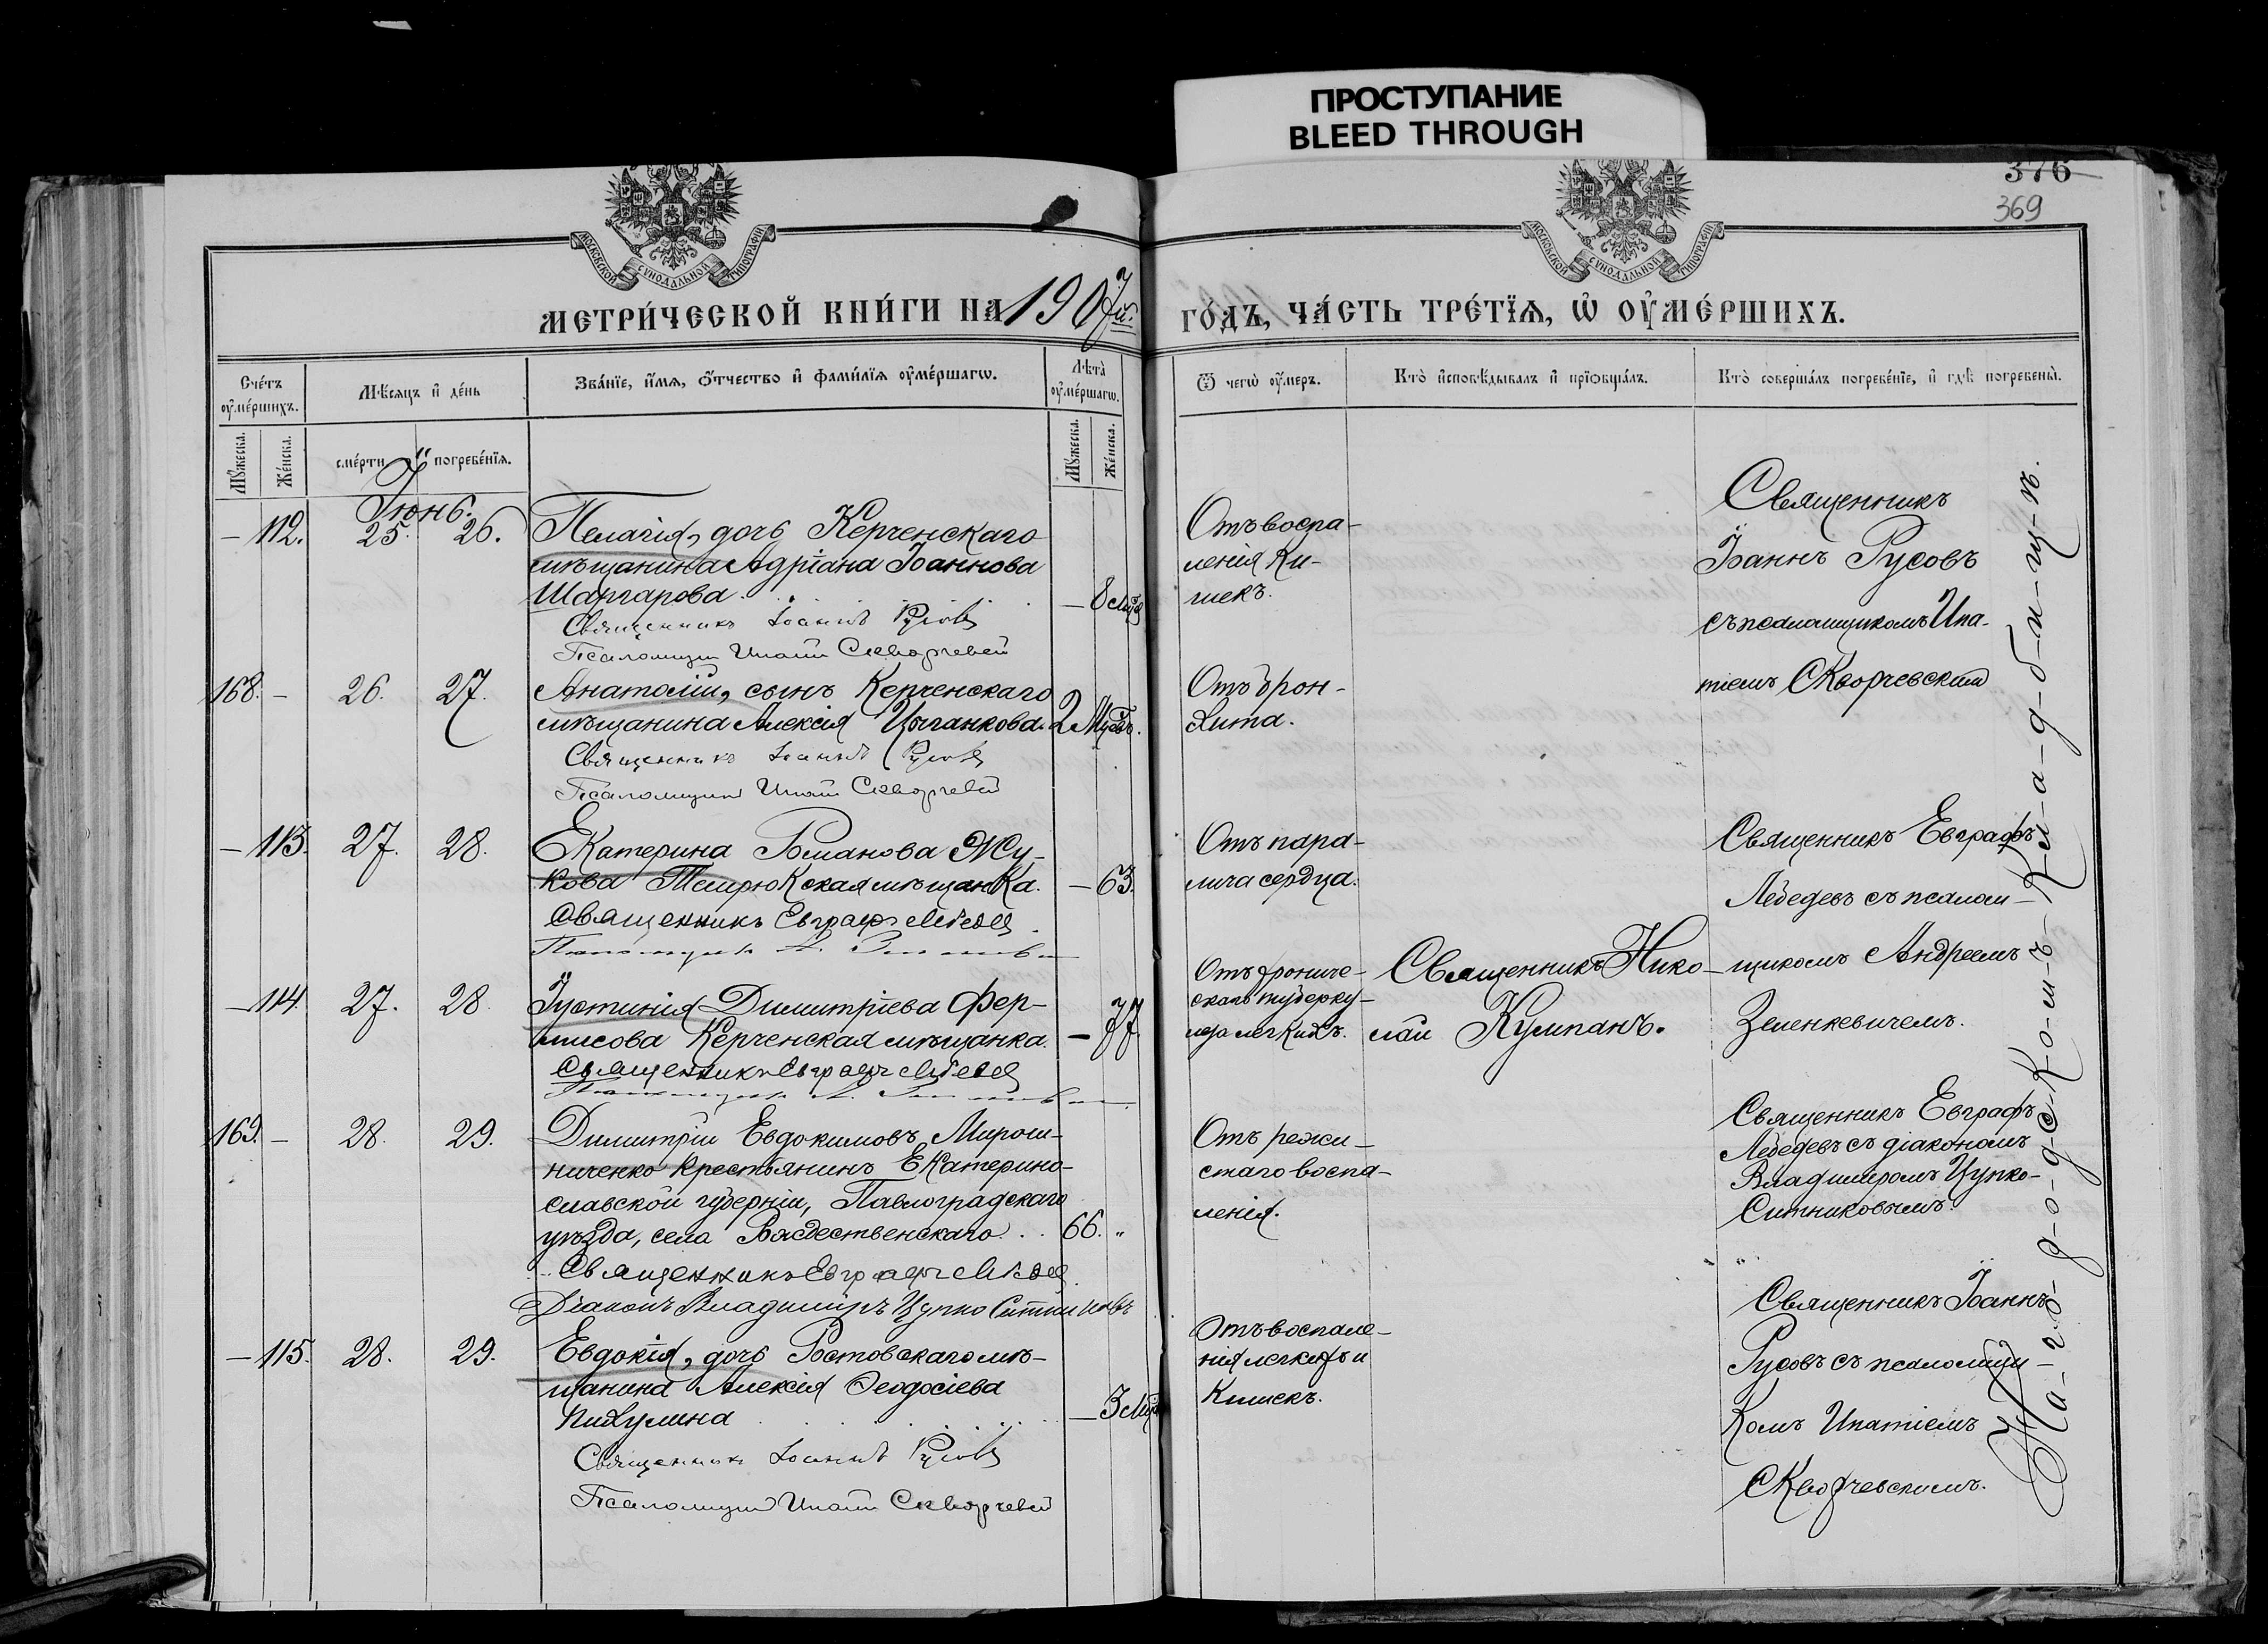 ПРОСТУПАНИЕ
BLEED THROUGH
376
369
МОСКОВСКОЙ СѴНОДАЛЬНОЙ ТИПОГРАФІИ
МОСКОВСКОЙ СѴНОДАЛЬНОЙ ТИПОГРАФІИ
МЕТРИ́ЧЕСКОЙ КНИ́ГИ НА 1907й. ГО́ДЪ, ЧА́СТЬ ТРЕ́ТІѦ, Ѡ ОУ҆МЕ́РШИХЪ.
Сче́тъ оу҆ме́ршихъ.
Мѣ́сѧцъ и҆ де́нь
Зва́нїе, и҆́мѧ, ѻ҆́тчество и҆ фами́лїѧ оу҆ме́ршагѡ.
Лѣ́та оу҆ме́ршагѡ.
Ѿ чегѡ̀ оу҆́меръ.
Кто̀ и҆сповѣ́дывалъ и҆ прїѡбща́лъ.
Кто̀ соверша́лъ погребе́нїе, и҆ гдѣ̀ погребены̀.
Мꙋ́жеска.
Же́нска.
сме́рти
погребе́нїѧ.
Мꙋ́жеска.
Же́нска.
Іюнь.
— 112. 25. 26. Пелагія, дочь Керченскаго
мѣщанина Адріана Іоаннова
Шаргарова. — 8 мцв
Священникъ Іоаннъ Русовъ
Псаломщик Ипатій Скворчевскій
Отъ воспа-
ленія Ки-
шекъ.
Священникъ
Іоаннъ Русовъ
съ псаломщикомъ Ипа-
тіемъ Скворчевским
168. — 26. 27. Анатолій, сынъ Керченскаго
мѣщанина Алексія Цыганкова. 2 Мцвъ.
Священникъ Іоаннъ Русовъ
Псаломщик Ипатій Скворчевскій
Отъ брон-
хита.
— 113. 27. 28. Екатерина Романова Жу-
кова Темрюкская мѣщанка. — 63.
Священникъ Евграфъ Лебедев
Псаломщикъ А.
Отъ пара-
лича сердца.
Священникъ Евграфъ
Лебедевъ съ псалом-
щикомъ Андреемъ
Зеленкевичемъ.
— 114. 27. 28. Іустинія Димитріева Фер-
мисова Керченская мѣщанка. — 77
Священникъ Евграфъ Лебедев
Отъ хрониче-
скаго туберку-
леза легкихъ.
Священникъ Нико-
лай Кумпанъ.
169. — 28. 29. Димитрій Евдокимовъ Мирош-
ниченко крестьянинъ Екатерино-
славской губерніи, Павлоградскаго
уѣзда, села Рождественскаго . . 66. "
Священникъ Евграфъ Лебедев
Діаконъ Владимиръ Цупко Ситниковъ
Отъ рожи-
стаго воспа-
ленія.
Священникъ Евграфъ
Лебедевъ съ діакономъ
Владимиромъ Цупко-
Ситниковымъ.
— 115. 28. 29. Евдокія, дочь Ростовскаго мѣ-
щанина Алексія Ѳеодосіева
Пихулина — 3 мцв
Священник Іоаннъ Русовъ
Псаломщик Ипатій Скворчевскій
Отъ воспале-
нія легкихъ и
Кишекъ.
Священникъ Іоаннъ
Русовъ съ псаломщи-
комъ Ипатіемъ
Скворчевскимъ.
На-го-родско-мъ-Кл-а-д-б-и-щ-ѣ.